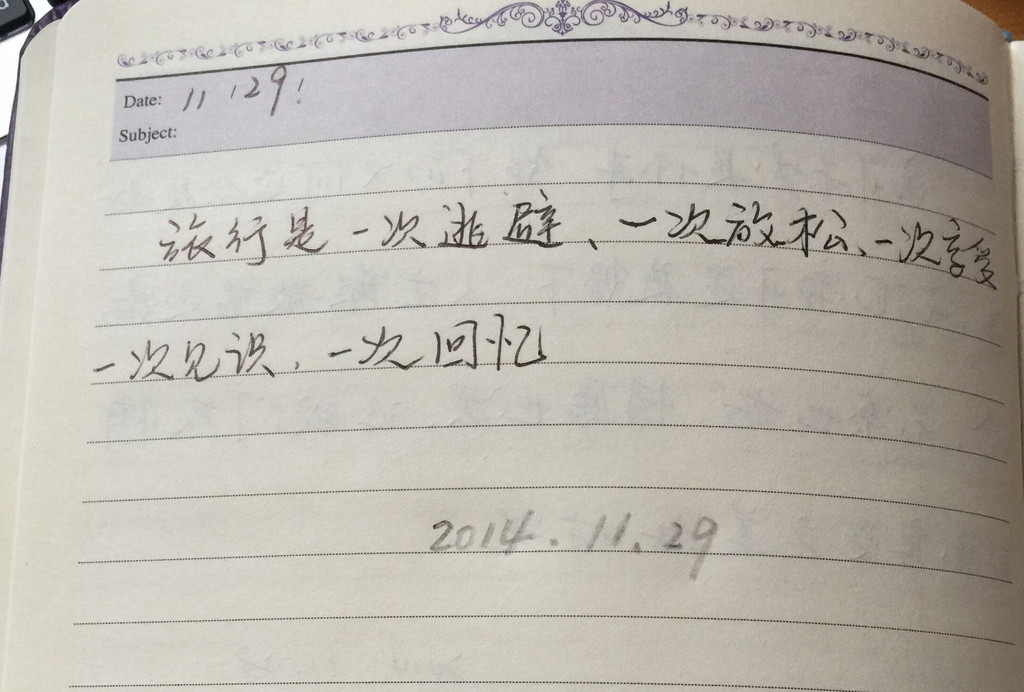 Date: 11 '29!
Subject:
旅行是一次逃避、一次放松、一次享受
一次见识、一次回忆
2014.11.29